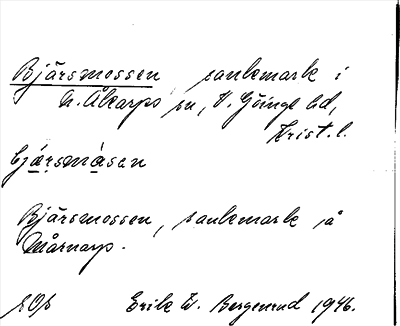 Bjärsmossen sankmark i
N. Åkarps sn, V. Göinge hd,
Krist. l.
bjæ̣rsmåsen
Bjärsmossen, sankmark på
Mårnarp.
Erik W. Bergenrud 1946.